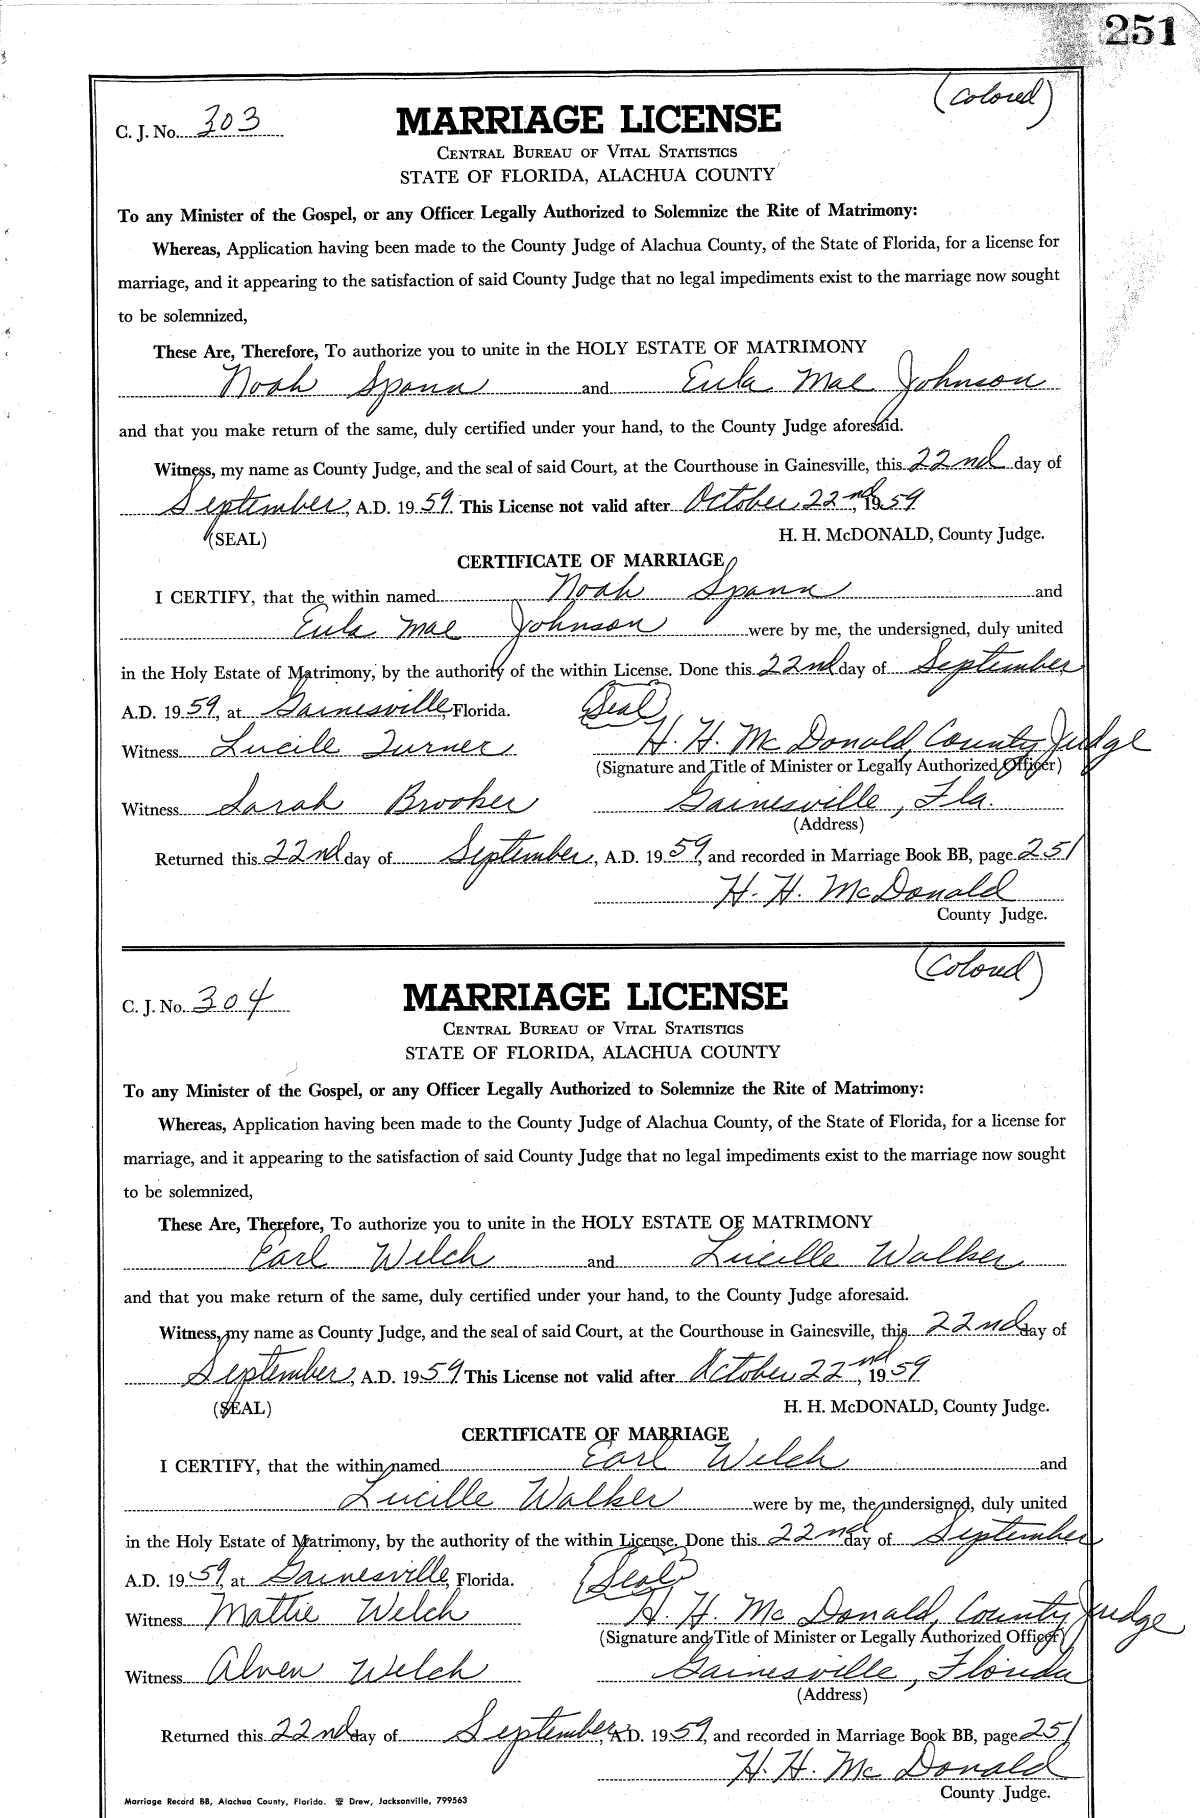 251
(Colored)
C. J. No. 303
MARRIAGE LICENSE
CENTRAL BUREAU OF VITAL STATISTICS
STATE OF FLORIDA, ALACHUA COUNTY
To any Minister of the Gospel, or any Officer Legally Authorized to Solemnize the Rite of Matrimony:
Whereas, Application having been made to the County Judge of Alachua County, of the State of Florida, for a license for
marriage, and it appearing to the satisfaction of said County Judge that no legal impediments exist to the marriage now sought
to be solemnized,
These Are, Therefore, To authorize you to unite in the HOLY ESTATE OF MATRIMONY
Noah Spann and Eula Mae Johnson
and that you make return of the same, duly certified under your hand, to the County Judge aforesaid.
Witness, my name as County Judge, and the seal of said Court, at the Courthouse in Gainesville, this 22nd day of
September, A.D. 1959. This License not valid after October 22nd, 1959
(SEAL) H. H. McDONALD, County Judge.
CERTIFICATE OF MARRIAGE
I CERTIFY, that the within named Noah Spann and
Eula Mae Johnson were by me, the undersigned, duly united
in the Holy Estate of Matrimony, by the authority of the within License. Done this 22nd day of September,
A.D. 1959, at Gainesville, Florida. (Seal)
Witness Lucile Turner H. H. McDonald, County Judge
(Signature and Title of Minister or Legally Authorized Officer)
Witness Sarah Brooker Gainesville, Fla.
(Address)
Returned this 22nd day of September, A.D. 1959, and recorded in Marriage Book BB, page 251
H. H. McDonald
County Judge.
(Colored)
C. J. No. 304
MARRIAGE LICENSE
CENTRAL BUREAU OF VITAL STATISTICS
STATE OF FLORIDA, ALACHUA COUNTY
To any Minister of the Gospel, or any Officer Legally Authorized to Solemnize the Rite of Matrimony:
Whereas, Application having been made to the County Judge of Alachua County, of the State of Florida, for a license for
marriage, and it appearing to the satisfaction of said County Judge that no legal impediments exist to the marriage now sought
to be solemnized,
These Are, Therefore, To authorize you to unite in the HOLY ESTATE OF MATRIMONY
Earl Welch and Lucille Walker
and that you make return of the same, duly certified under your hand, to the County Judge aforesaid.
Witness, my name as County Judge, and the seal of said Court, at the Courthouse in Gainesville, this 22nd day of
September, A.D. 1959 This License not valid after October 22nd, 1959
(SEAL) H. H. McDONALD, County Judge.
CERTIFICATE OF MARRIAGE
I CERTIFY, that the within named Earl Welch and
Lucille Walker were by me, the undersigned, duly united
in the Holy Estate of Matrimony, by the authority of the within License. Done this 22nd day of September
A.D. 1959, at Gainesville, Florida. (Seal)
Witness Mattie Welch H. H. McDonald, County Judge
(Signature and Title of Minister or Legally Authorized Officer)
Witness Alven Welch Gainesville, Florida
(Address)
Returned this 22nd day of September, A.D. 1959, and recorded in Marriage Book BB, page 251
H. H. McDonald
County Judge.
Marriage Record BB, Alachua County, Florida. Drew, Jacksonville, 799563